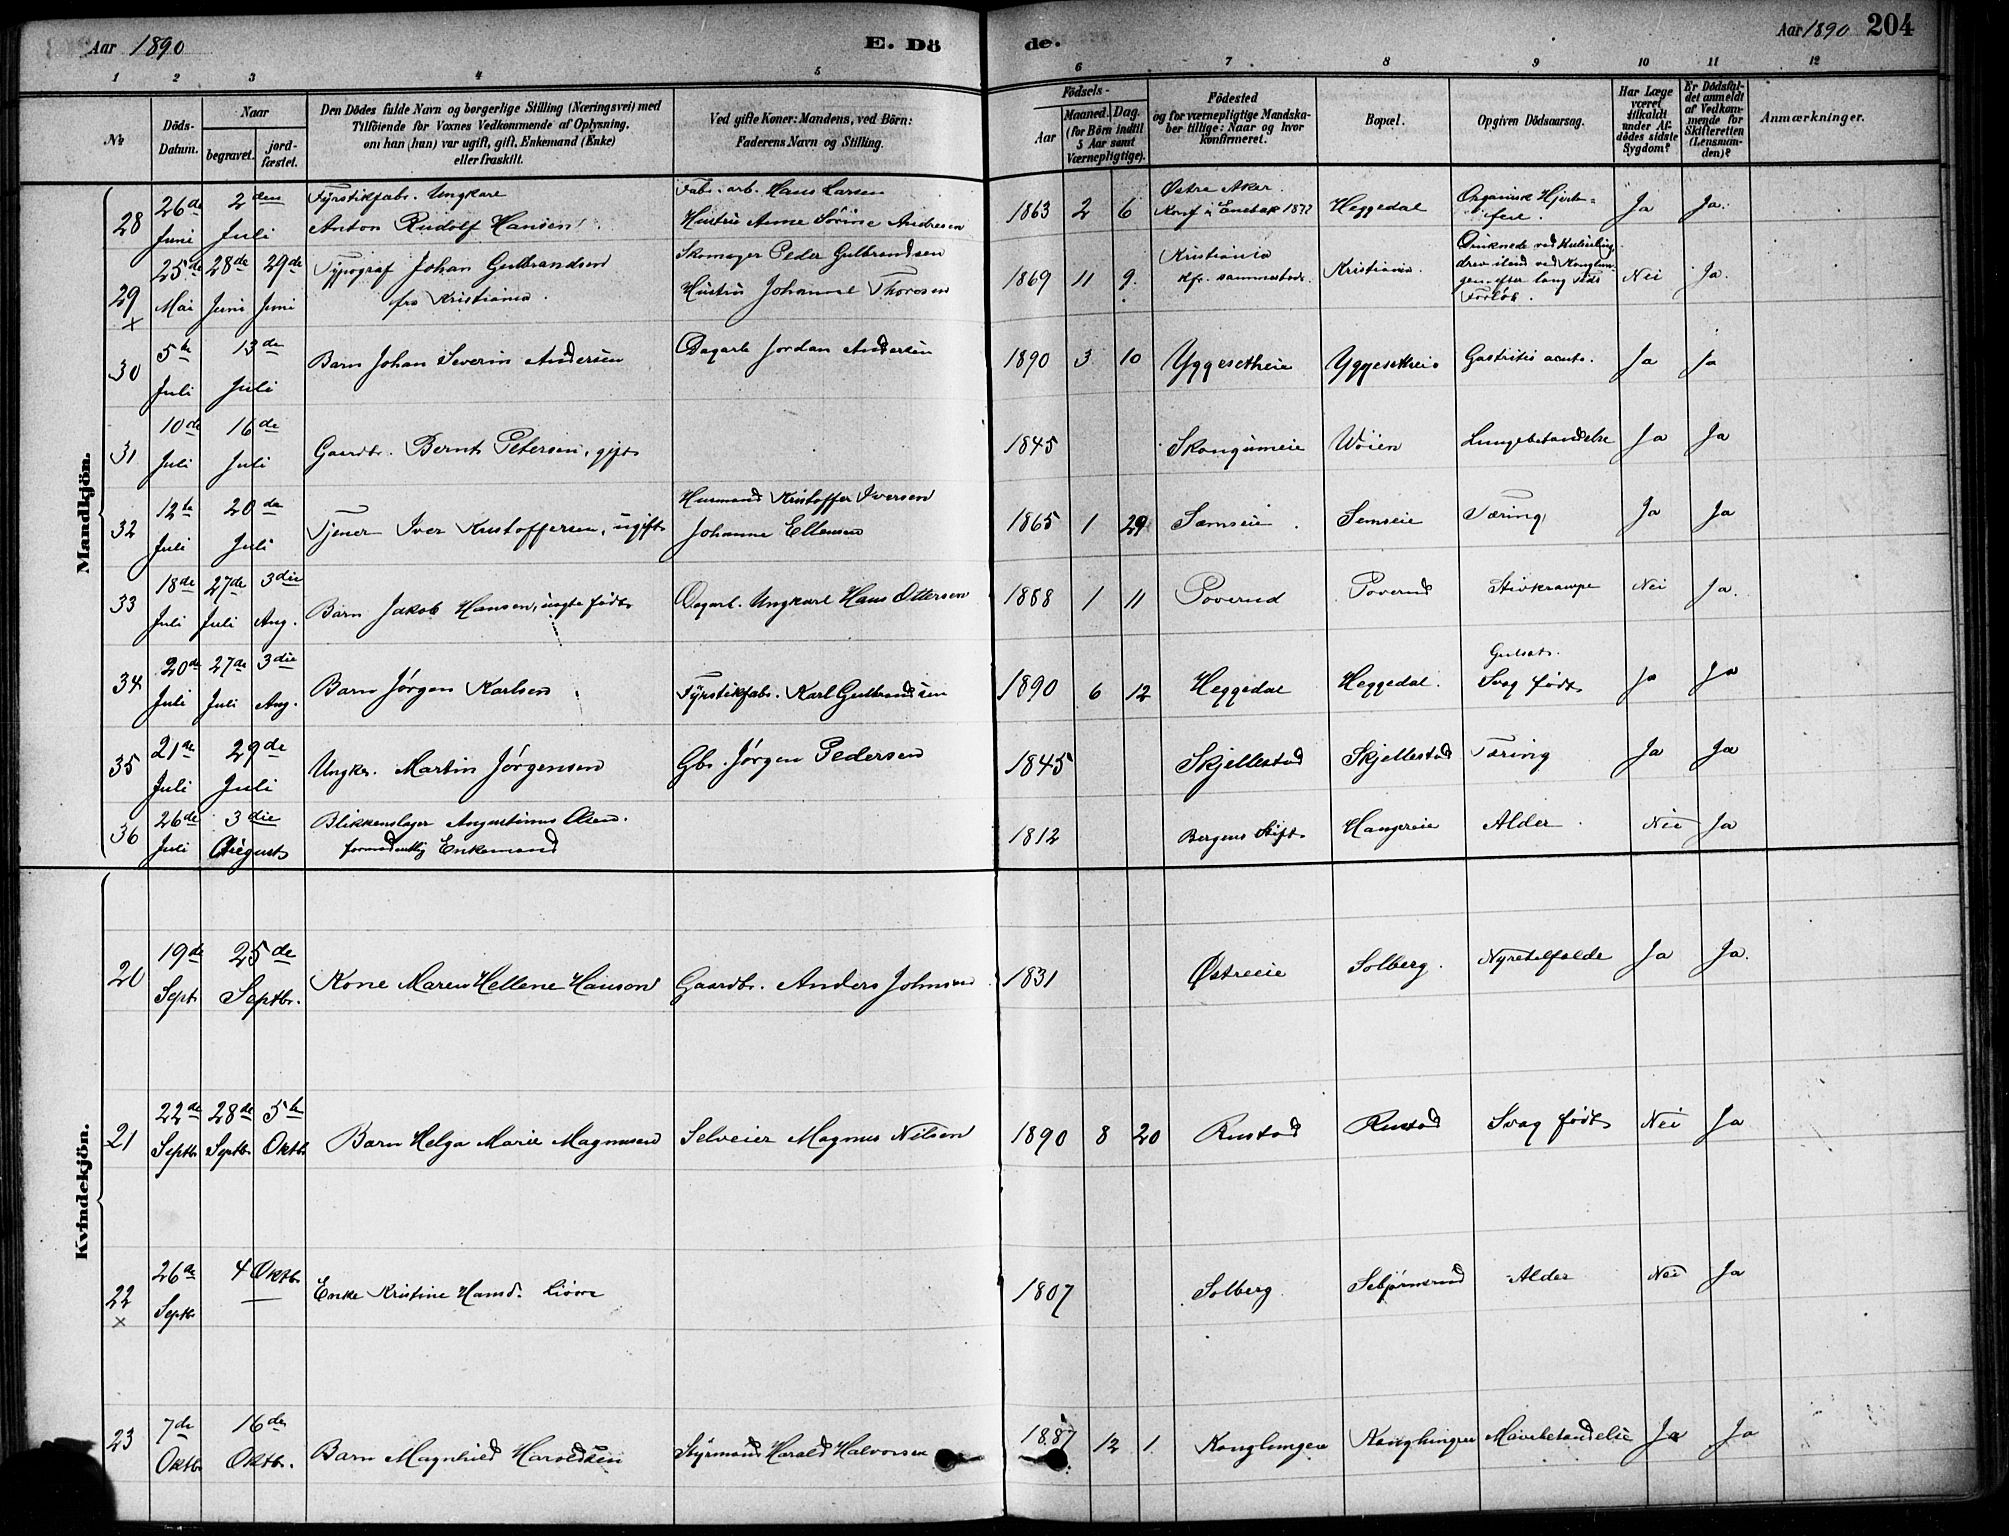 Aar 1890
E. Dö
de.
Aar 1890 204
1 2 3 4 5 6 7 8 9 10 11 12
№
Döds-Datum.
Naar
begravet.
jord-fæstet.
Den Dödes fulde Navn og borgerlige Stilling (Næringsvei) med
Tilföiende for Voxnes Vedkommende af Oplysning.
om han (hun) var ugift, gift, Enkemand (Enke)
eller fraskilt.
Ved gifte Koner: Mandens, ved Börn:
Faderens Navn og Stilling.
Födsels-
Aar
Maaned. Dag.
(for Börn indtil
5 Aar samt
Værnepligtige).
Födested
og for værnepligtige Mandska-
ber tillige: Naar og hvor
konfirmeret.
Bopæl.
Opgiven Dödsaarsag.
Har Læge
været
tilkaldt
under Af-
dödes sidste
Sygdom?
Er Dödsfal-
det anmeldt
af Vedkom-
mende for
Skifteretten
(Lensman-
den)?
Anmærkninger.
Mandkjön.
28 26de Juni 2den Juli Fyrstikfabr. Ungkarl Anton Rudolf Hansen Fabr. arb. Hans Larsen Hustru Anne Sörine Andresen 1863 2 6 Østre Aker. Konf i Enebak 1877 Heggedal Organisk Hjerte=feil. Ja Ja.
29 x 25de Mai 28de Juni 29de Juni Typograf Johan Gulbrandsen fra Kristiania. Skomager Peder Gulbrandsen Hustru Johanne Thoresen 1869 11 9. Kristiania kfr. sammesteds. Kristiania. Druknede ved drev iland ved efter lang Tids Forløb. Nei Ja.
30 5te Juli 13de Juli Barn Johan Severin Andersen Dagarb. Jordan Andersen 1890 3 10 Yggesetheie Yggesetheie Gastritis acut. Ja ja
31 10de Juli 16de Juli Gaardbr. Bernt Petersen, gift 1845 Skougumeie Wöien Lungebetændelse Ja Ja
32 12te Juli 20de Juli Tjener Iver Kristoffersen, ugift Husmand Kristoffer Iversen Johanne Ellensen 1865 1 29 Semseie Semseie Tæring Ja Ja
33 18de Juli 27de Juli 3die Aug. Barn Jakob Hansen, uægte født Dagarb. Ungkarl Hans Ottersen 1888 1 11 Poverud Poverud Stivkrampe Nei Ja.
34 20de Juli 27de Juli 3die Aug. Barn Jørgen Karlsen Fyrstikfabr. Karl Gulbrandsen 1890 6 12 Heggedal Heggedal. Gulsot. Svag født Ja Ja
35 21de Juli 29de Juli Ungkr. Martin Jørgensen Gbr. Jørgen Pedersen 1845 Skjellestad Skjellestad Tæring Ja Ja
36 26de Juli 3die August Blikkenslager Augustinus Olsen. formodentlig Enkemand 1812 Bergens Stift Hangereie Alder Nei Ja
Kvindekjön.
20 19de Sept 25de Septbr. Kone Maren Hellene Hanson Gaardbr. Anders Johnsen 1831 Østreeie Solberg. Nyretilfælde Ja Ja.
21 22de Septbr 28de Septbr 5te Oktbr Barn Helga Marie Magnusen Selveier Magnus Nilsen 1890 8 20 Rustad Rustad Svag født Nei Ja
22 x 26de Septbr 4 Oktbr — Enke Kristine Hansd. 1807 Solberg Alder Nei Ja
23 7de Oktbr 16de Oktbr. Barn Magnhild Haroldsen Styrmand Harald Halvorsen 1887 12 1 Konglungen Konglungen Mavebetændelse Ja Ja